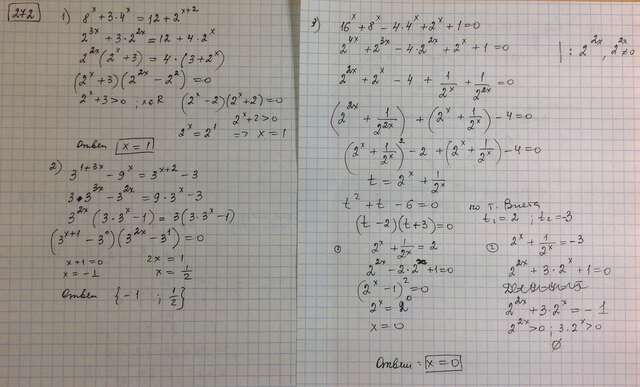 272
1) 8^x + 3·4^x = 12 + 2^(x+2)
2^(3x) + 3·2^(2x) = 12 + 4·2^x
2^(2x)(2^x + 3) = 4·(3 + 2^x)
(2^x + 3)(2^(2x) − 2^2) = 0
2^x + 3 > 0 ; x∈R (2^x − 2)(2^x + 2) = 0
2^x + 2 > 0
2^x = 2^1 => x = 1
Ответ x = 1
2) 3^(1+3x) − 9^x = 3^(x+2) − 3
3·3^(3x) − 3^(2x) = 9·3^x − 3
3^(2x)(3·3^x − 1) = 3(3·3^x − 1)
(3^(x+1) − 3^0)(3^(2x) − 3^1) = 0
x + 1 = 0 2x = 1
x = −1 x = 1/2
Ответ {−1 ; 1/2}
3) 16^x + 8^x − 4·4^x + 2^x + 1 = 0
2^(4x) + 2^(3x) − 4·2^(2x) + 2^x + 1 = 0 | : 2^(2x), 2^(2x) ≠ 0
2^(2x) + 2^x − 4 + 1/2^x + 1/2^(2x) = 0
(2^(2x) + 1/2^(2x)) + (2^x + 1/2^x) − 4 = 0
(2^x + 1/2^x)^2 − 2 + (2^x + 1/2^x) − 4 = 0
t = 2^x + 1/2^x
t^2 + t − 6 = 0 по т. Виета
(t − 2)(t + 3) = 0 t₁ = 2 ; t₂ = −3
① 2^x + 1/2^x = 2
2^(2x) − 2·2^x + 1 = 0
(2^x − 1)^2 = 0
2^x = 2^0
x = 0
② 2^x + 1/2^x = −3
2^(2x) + 3·2^x + 1 = 0
2^(2x) + 3·2^x = −1
2^(2x) > 0 ; 3·2^x > 0
∅
Ответ = x = 0